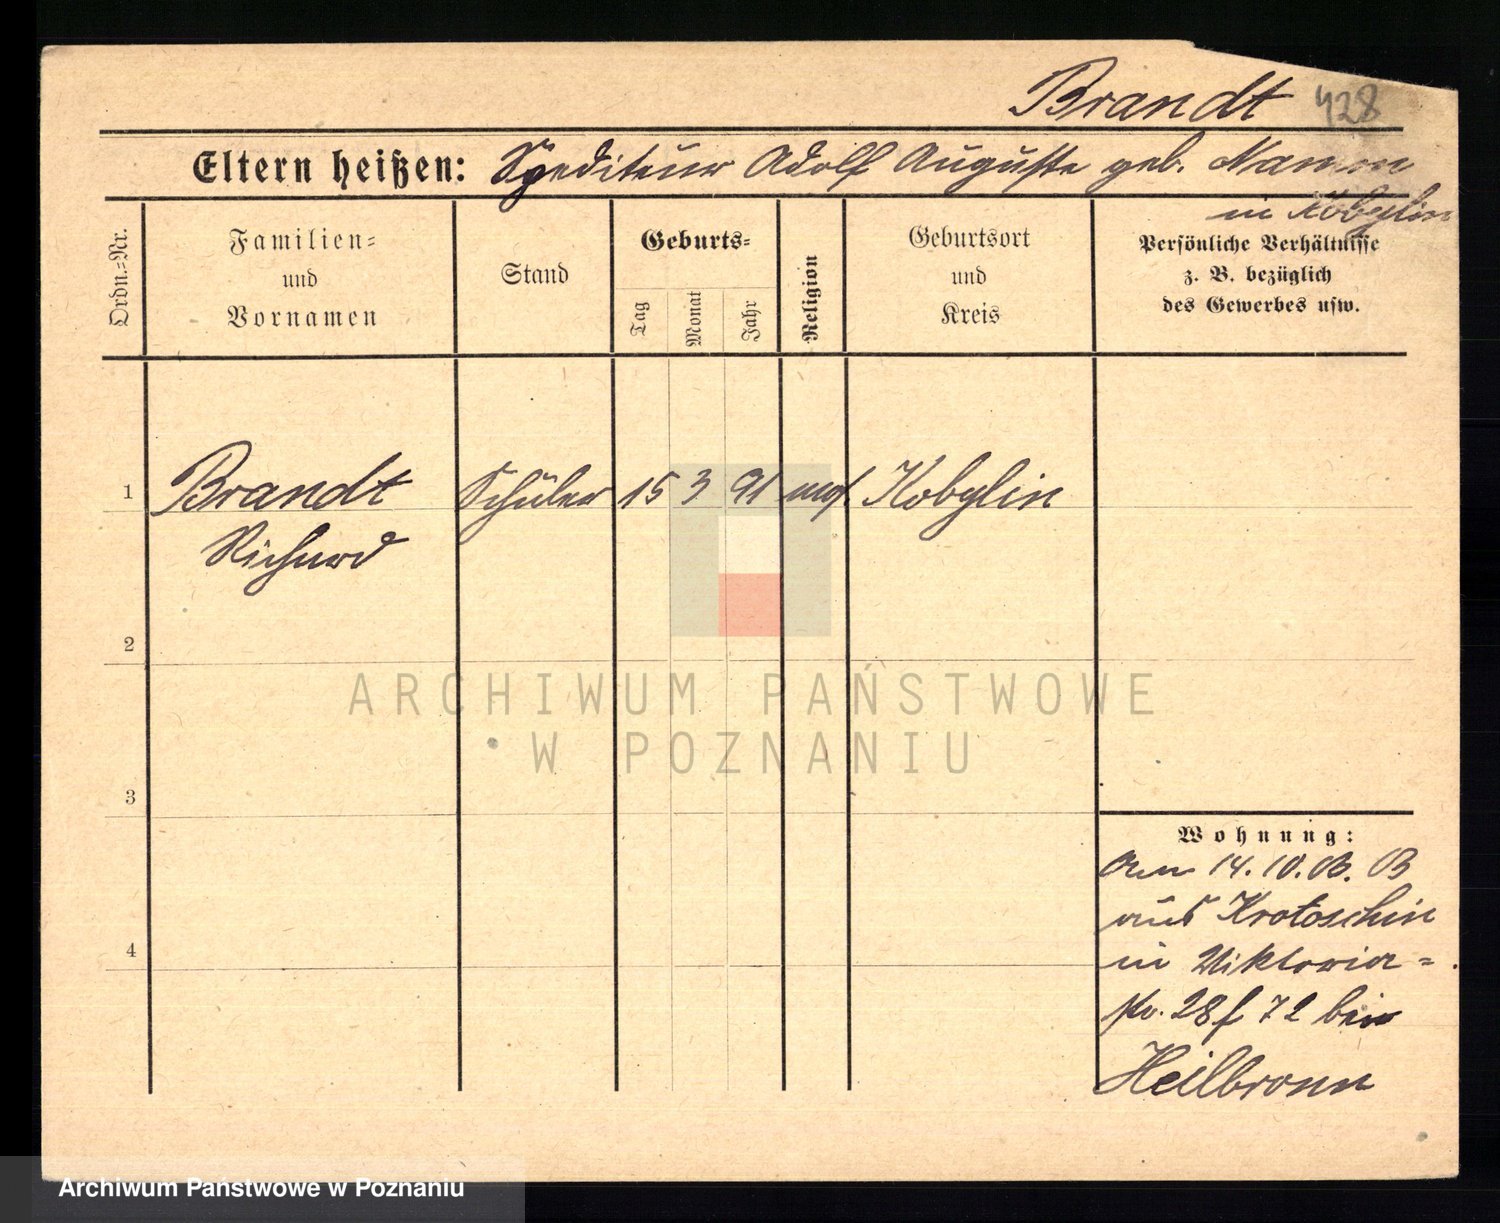 Brandt 428
Eltern heißen: Spediteur Adolf Auguste geb.
in Kobylin
Ordn.-Nr.
Familien-
und
Vornamen
Stand
Geburts-
Tag
Monat
Jahr
Religion
Geburtsort
und
Kreis
Persönliche Verhältnisse
z. B. bezüglich
des Gewerbes usw.
1 Brandt Schüler 15 3 91 Kobylin
Richard
2
3
4
Wohnung:
14.10.
aus Krotoschin
in Viktoria=
str. 28 72 bei
Heilbronn
ARCHIWUM PAŃSTWOWE
W POZNANIU
Archiwum Państwowe w Poznaniu